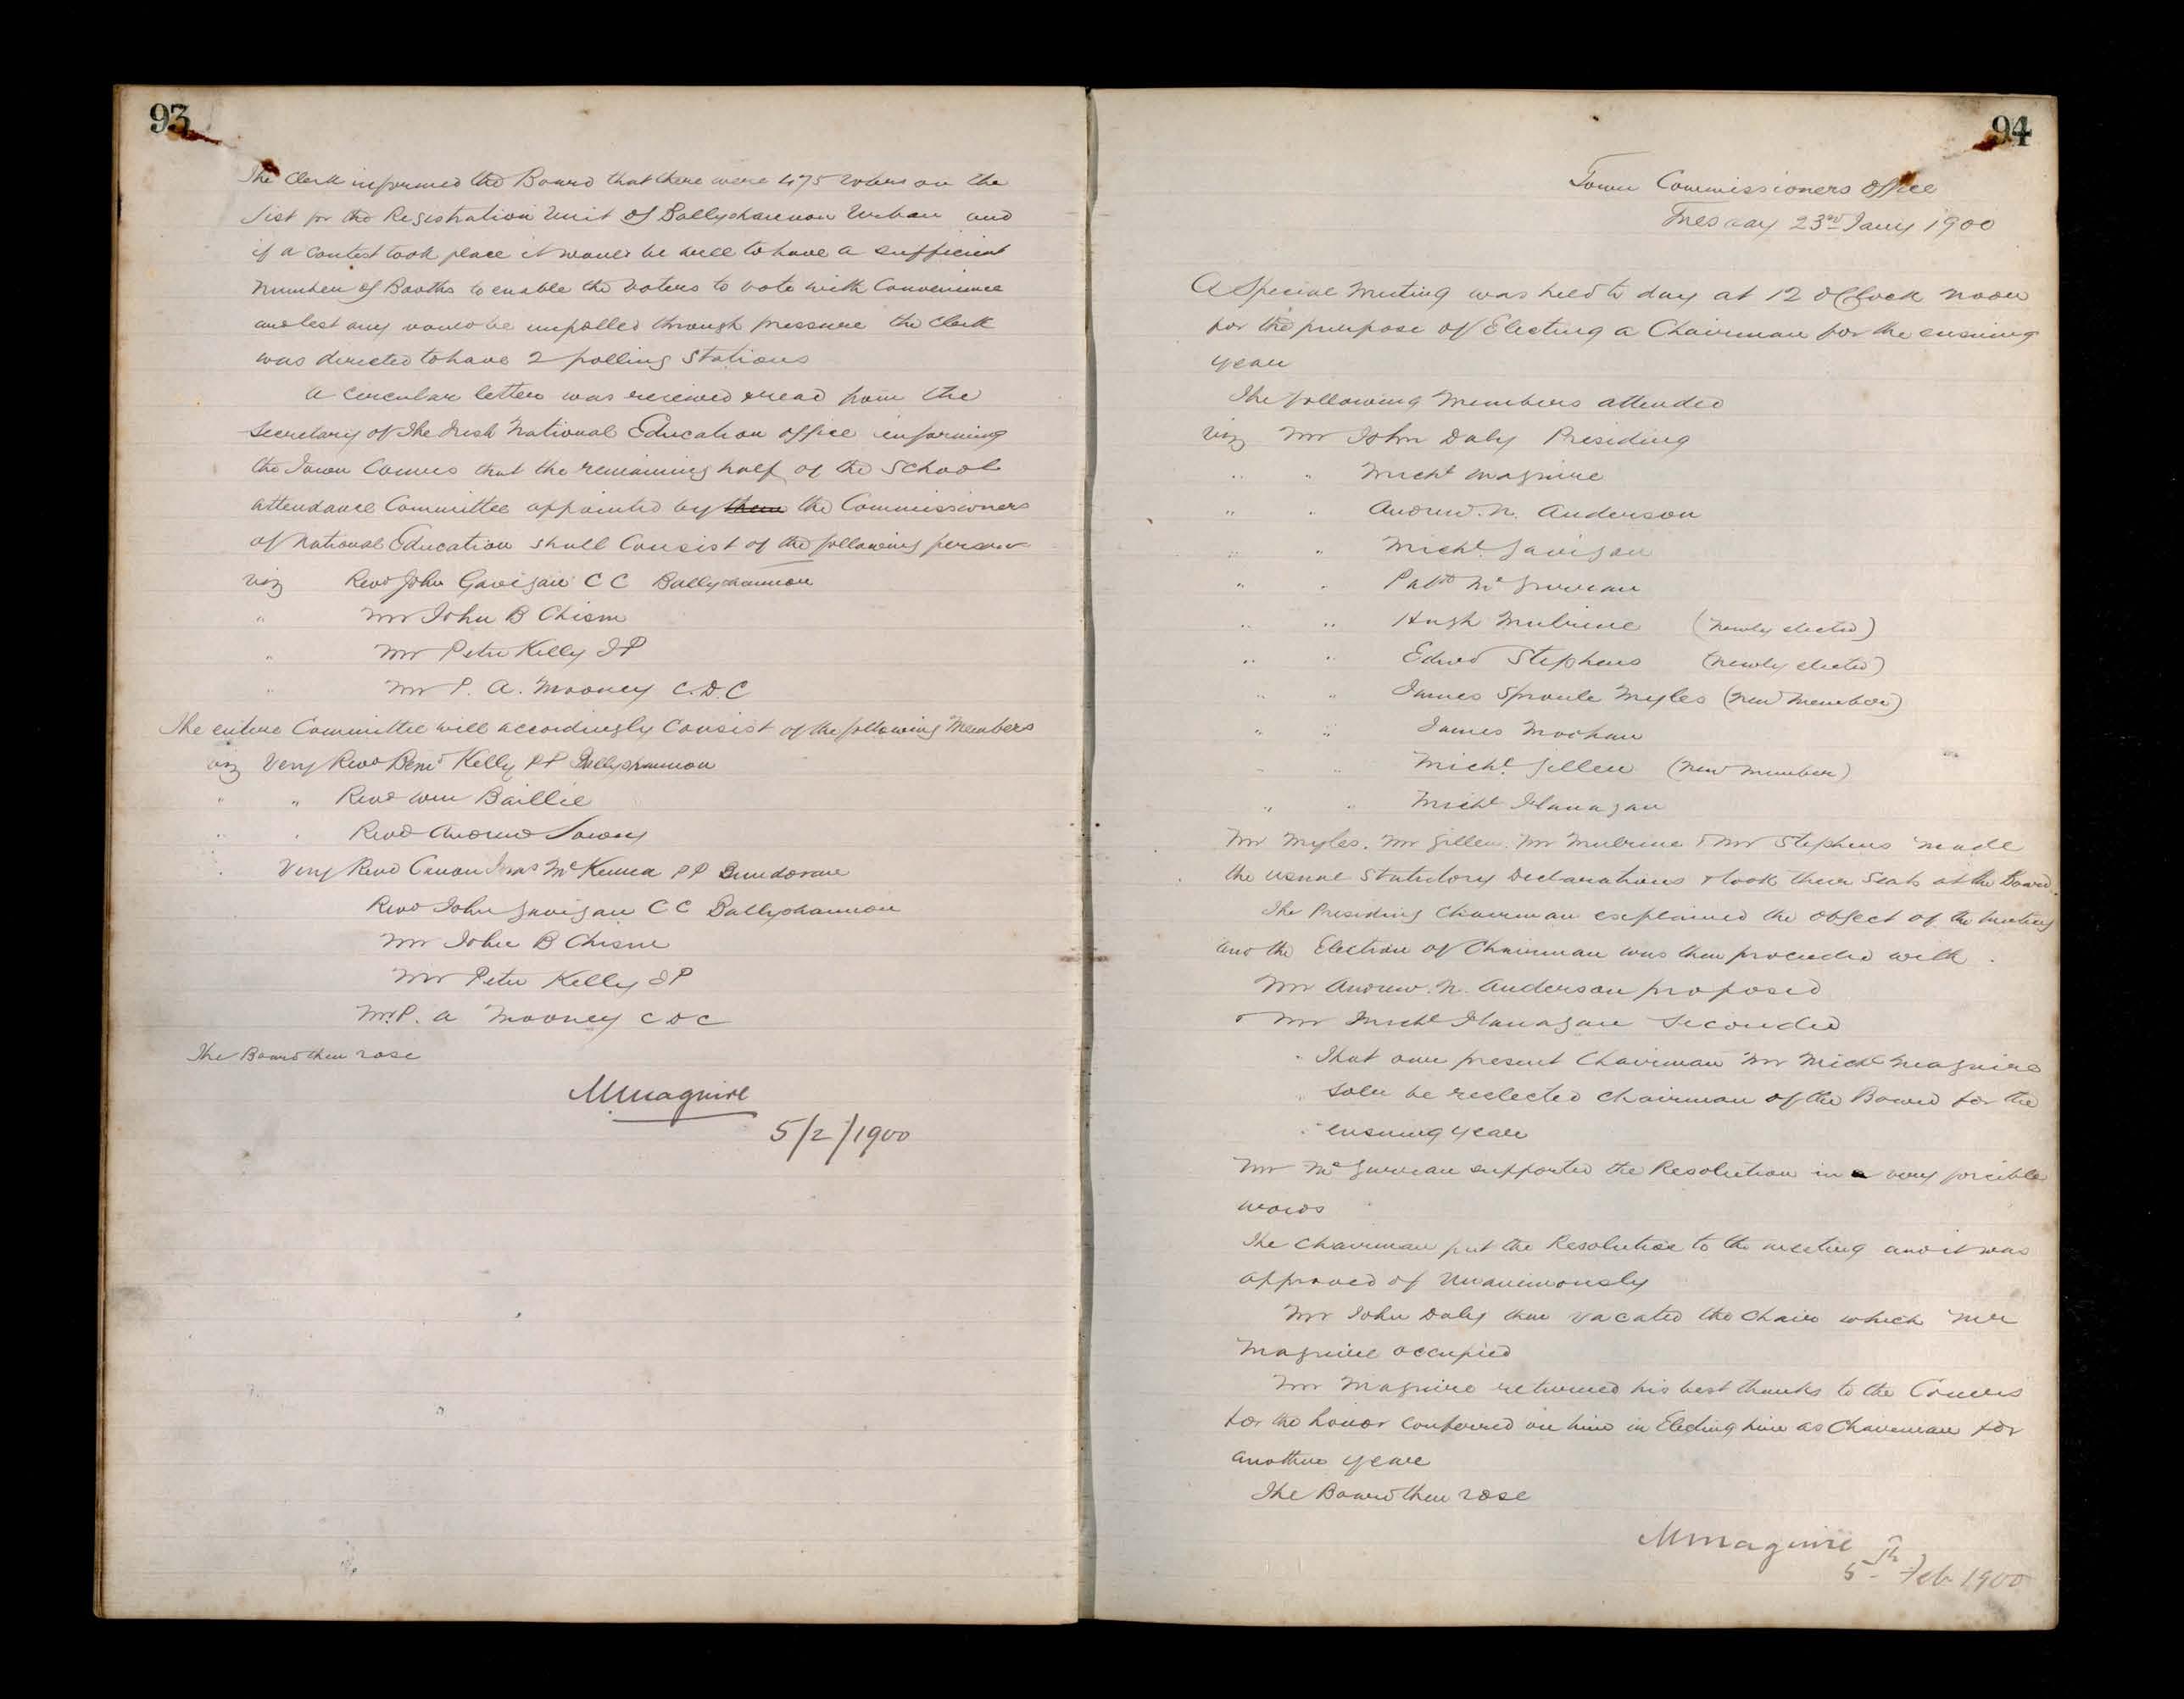 93
The Clerk informed the Board that there were 475 Voters on the
List for the Registration Unit of Ballyshannon Urban and
if a Contest took place it would be well to have a sufficient
number of Booths to enable the Voters to vote with Convenience
and lest any would be unpolled through pressure the Clerk
was directed to have 2 polling Stations
A circular letter was received & read from the
Secretary of The Irish National Education office informing
the Town Comrs that the remaining half of the School
attendance Committee appointed by them the Commissioners
of National Education shall Consist of the following persons
viz Revd John Gavigan C C Ballyshannon
" Mr John B Chism
" Mr Peter Kelly J P
" Mr P. A. Mooney C. D. C
The entire Committee will accordingly Consist of the following Members
viz Very Revd Kelly P P Ballyshannon
" " Revd Wm Baillie
" " Revd Andrew Lowry
" Very Revd Canon McKenna P P Bundoran
Revd John Gavigan C C Ballyshannon
Mr John B Chism
Mr Peter Kelly J P
Mr P. A Mooney C D C
The Board then rose
MMaguire
5/2/1900
94
Town Commissioners Office
Tuesday 23rd Jany 1900
A Special Meeting was held to day at 12 O'Clock noon
for the purpose of Electing a Chairman for the ensuing
year
The following Members attended
viz Mr John Daly Presiding
" " Michl Maguire
" " Andrew. N. Anderson
" " Michl Gavigan
" " Patk McGurran
" " Hugh Mulrine (newly elected)
" " Edwd Stephens (newly elected)
" " James Sproule Myles (New Member)
" " James Moohan
" " Michl Gillen (New Member)
" " Michl Flanagan
Mr Myles. Mr Gillen. Mr Mulrine & Mr Stephens made
the usual Statutory Declarations & took their Seats at the Board.
The Presiding Chairman explained the Object of the Meeting
and the Election of Chairman was then proceeded with.
Mr Andrew. N. Anderson proposed
& Mr Michl Flanagan Seconded
" That our present Chairman Mr Michl Maguire
" Solr be reelected Chairman of the Board for the
" ensuing year
Mr McGurran supported the Resolution in a very forcible
words
The Chairman put the Resolution to the meeting and it was
approved of Unanimously
Mr John Daly then vacated the Chair which Mr
Maguire occupied
Mr Maguire returned his best thanks to the Comrs
for the honor conferred on him in Electing him as Chairman for
another year
The Board then rose
MMaguire
5th Feb 1900